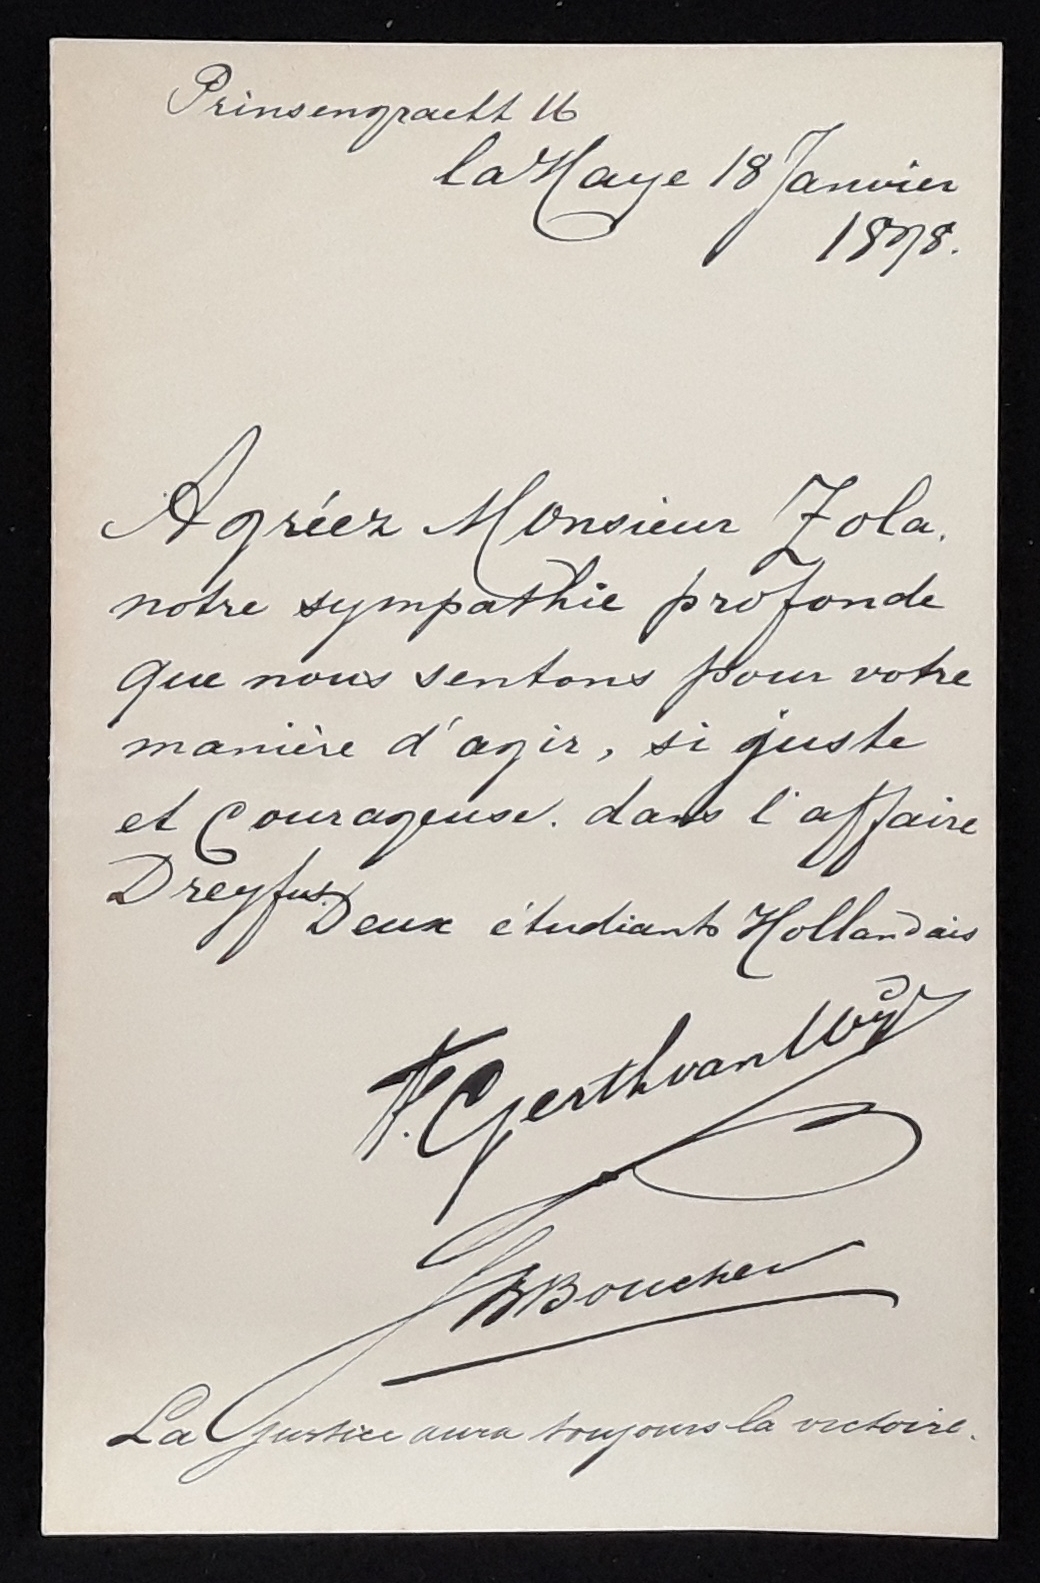 Prinsengracht 16
la Haye 18 Janvier
1898.
Agréez Monsieur Zola,
notre sympathie profonde
que nous sentons pour votre
manière d'agir, si juste
et courageuse. dans l'affaire
Dreyfus.
Deux étudiants Hollandais
F. Gerth van Wyk
Boucher
La Justice aura toujours la victoire.